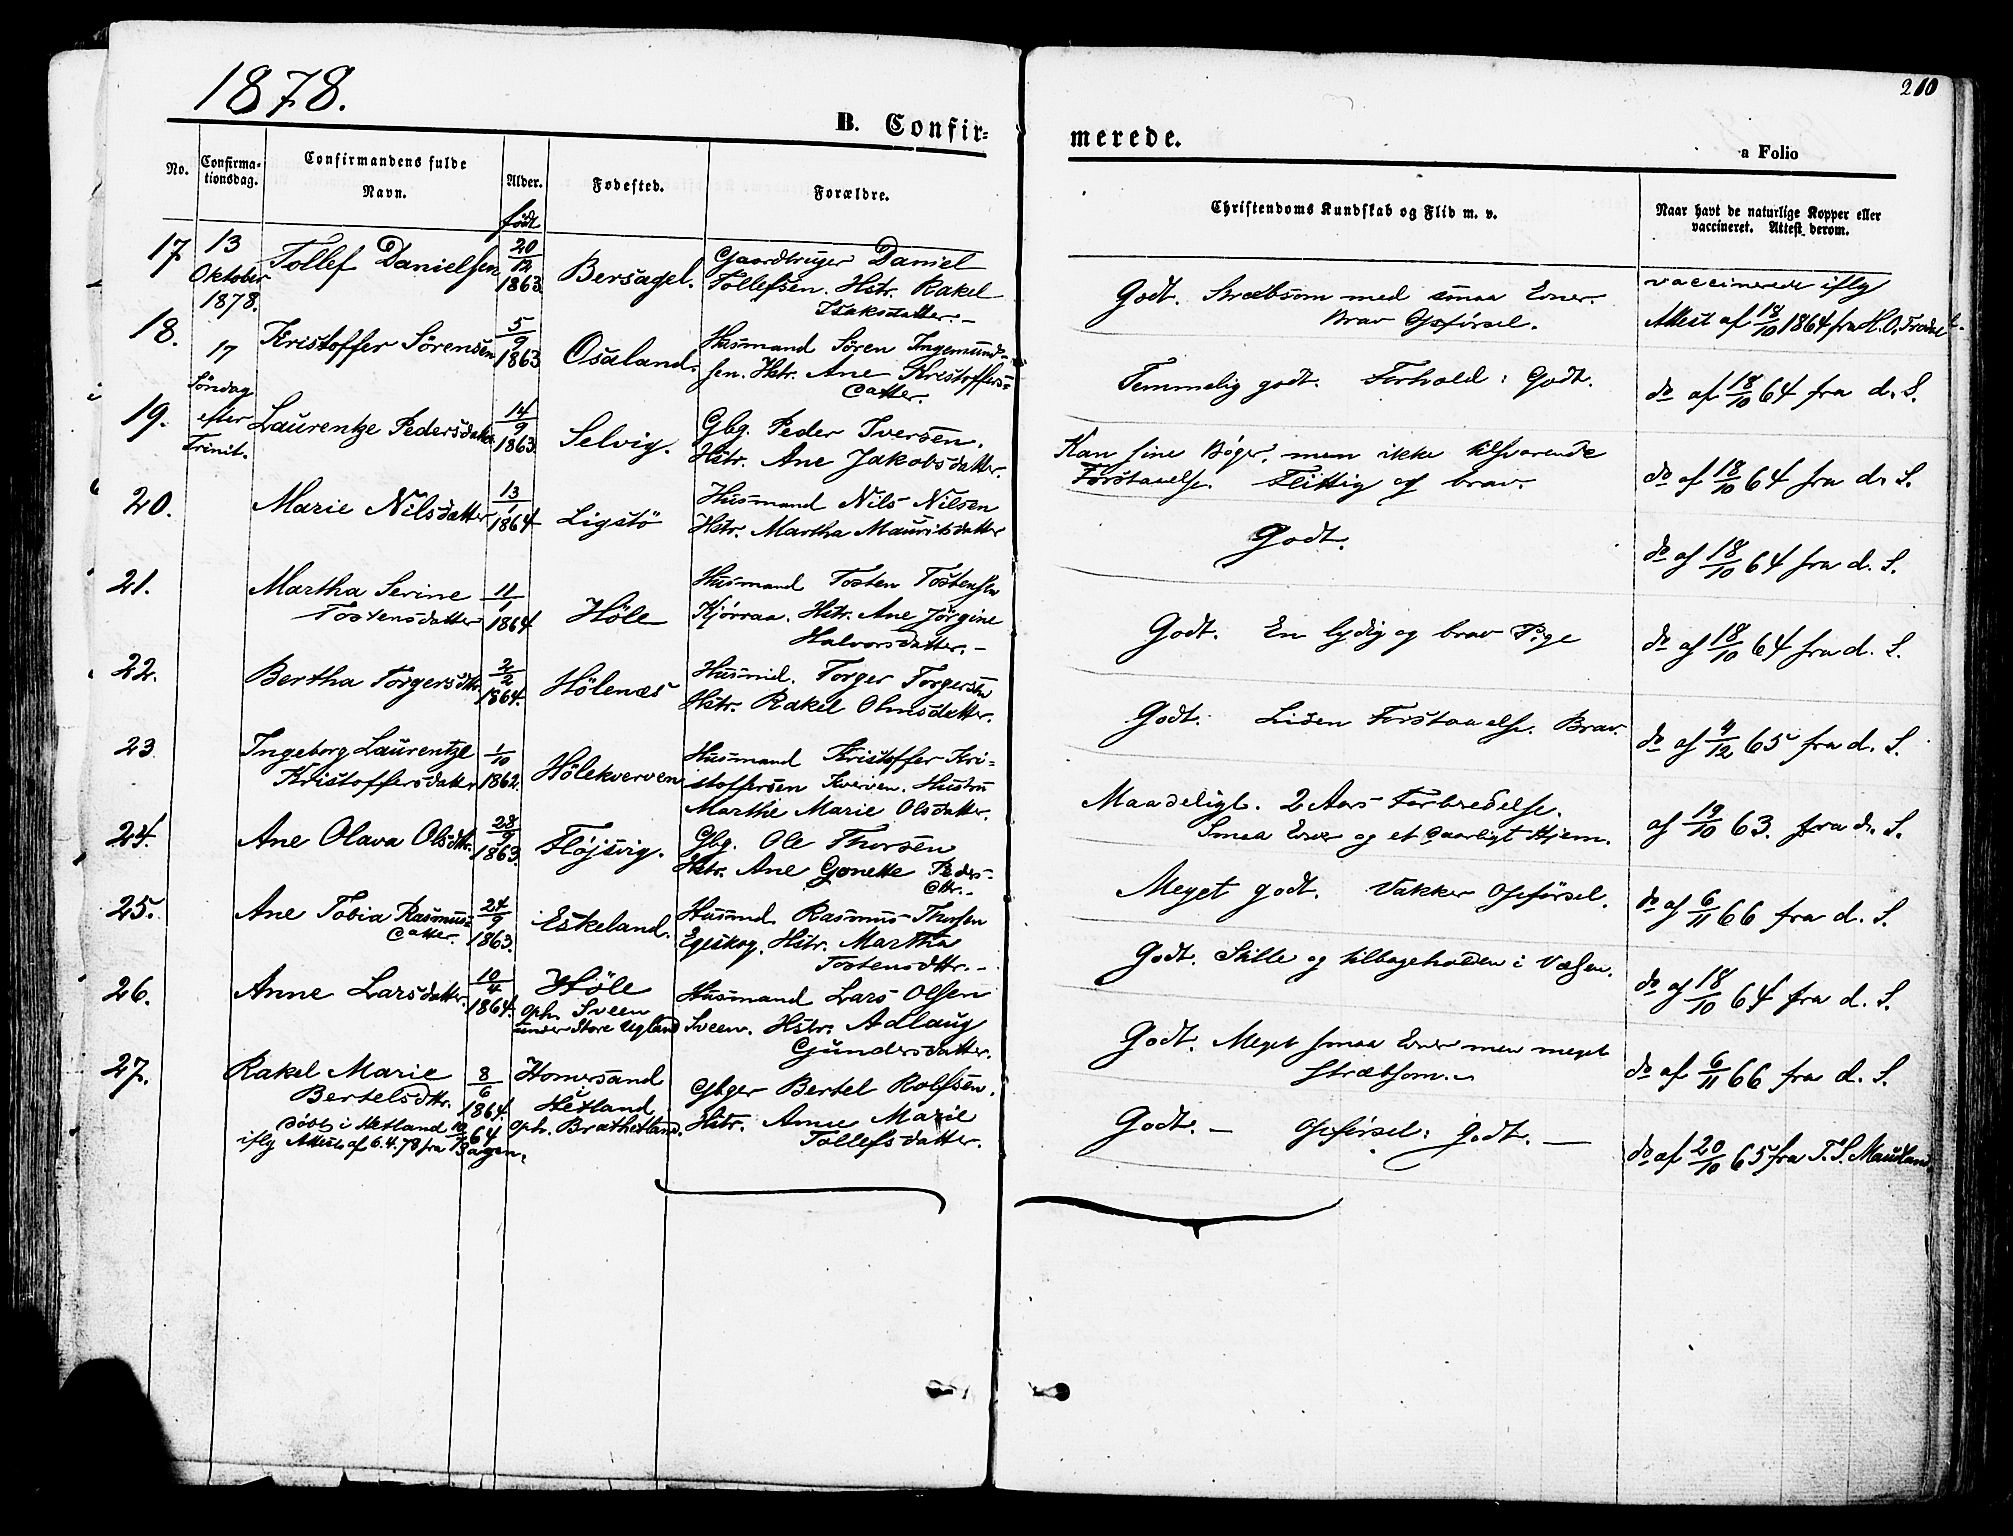 1878.
210
B. Confir-
merede.
a Folio
No.
Confirma-
tionsdag.
Confirmandens fulde
Navn.
Alder.
født
Fødested.
Forældre.
Christendoms Kundskab og Flid m. v.
Naar havt de naturlige Kopper eller
vaccineret. Attest derom.
17
13
Oktober
1878.
17
Söndag
efter
Trinit.
Tollef Danielsen
20/12
1863
Bersagel.
Gaardbruger Daniel
Tollefsen. Hstr. Rakel
Isaksdatter.-
Godt. Stræbsom med smaa Evner.
Brav Opførsel.
vaccinerede iflg
Attest af 18/10 1864 fra H. O.
18.
Kristoffer Sörensen
5/9
1863
Osaland.
Husmand Sören Ingemund-
sen. Hstr. Ane Kristoffers-
datter.
Temmelig godt. Forhold: Godt.
do af 18/10 64 fra d. S.
19.
Laurentze Pedersdatter
14/9
1863
Selvig.
Gbg. Peder Iversen.
Hstr. Ane Jakobsdatter.
Kan sine Bøger, men ikke tilsvarende
Forstaaelse. Flittig og brav.
do af 18/10 64 fra d. S.
20.
Marie Nilsdatter
13/1
1864
Ligstö
Husmand Nils Nilsen
Hstr. Martha Mauritsdatter
Godt.
do af 18/10 64 fra d. S.
21.
Martha Serine
Tostensdatter
11/1
1864
Höle
Husmand Tosten Tostensen
Kjörraa. Hstr. Ane Jörgine
Halvorsdatter.-
Godt. En lydig og brav Pige
do af 18/10 64 fra d. S.
22.
Bertha Torgersdtr.
2/2
1864.
Hölenæs
Husmd. Torger Torgersen
Hstr. Rakel
Godt. Liden Forstaaelse. Brav.
do af 4/12 65 fra d. S.
23
Ingeborg Laurentze
Kristoffersdatter
1/10
1862.
Hölekverven
Husmand Kristoffer Kri-
stoffersen Kverven. Hustru
Marthe Marie Olsdatter.
Maadeligt. 2 Aars Forberedelse.
Smaa Evner og et daarligt Hjem.
af 19/10 63. fra d. S.
24.
Ane Olava Olsdtr.
28/9
1863.
Flöjsvig.
Gbg. Ole Thorsen
Hstr. Ane Gonette Peders-
dtr.-
Meget godt. Vakker Opførsel.
do af 6/11 66 fra d. S.
25.
Ane Tobia Rasmus-
datter.
24/9
1863.
Eskeland.
Husmd. Rasmus Thorsen
Egeskog. Hstr. Martha
Tostensdtr.-
Godt. Stille og tilbageholden i Væsen.
do af 18/10 64 fra d. S.
26.
Anne Larsdatter.
10/4
1864.
Höle
oph. Sveen
under Store Ugland
Husmand Lars Olsen
Sveen. Hstr. Adlaug
Gundersdatter.
Godt. Meget smaa Evner men meget
stræbsom.-
do af 6/11 66 fra d. S.
27.
Rakel Marie
Bertelsdtr.
döbt i Hetland 64
iflg Attest af 6.4.78 fra
8/6
1864
Homersand
Hetland
oph. Brathetland.
Gbger Bertel Rolfsen.
Hstr. Anne Marie
Tollefsdatter.
Godt. - Opførsel: Godt. -
do af 20/10 65 fra T. S. Maudland